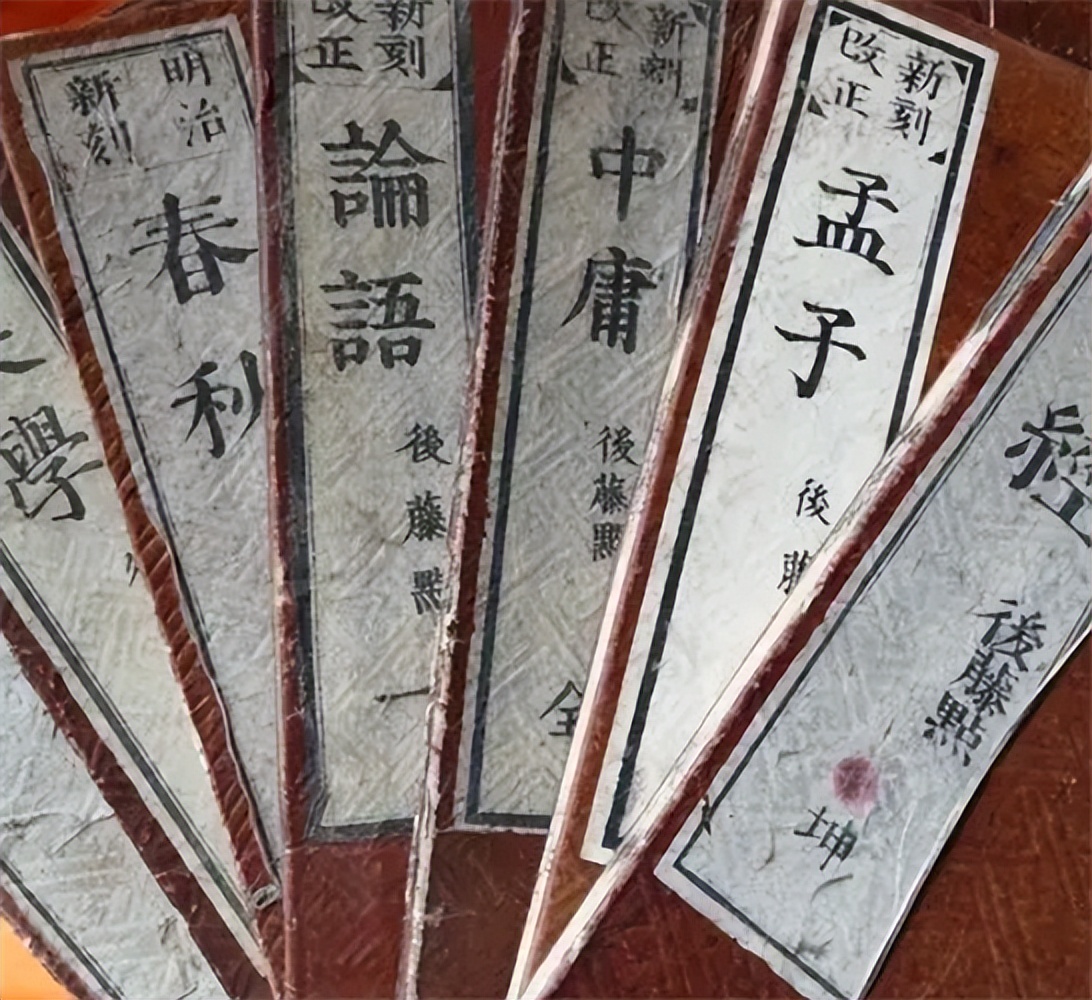 學
明治
新刻
春利
新刻
改正
論語
後藤點
一
新刻
改正
中庸
後藤點
全
新刻
改正
孟子
後藤
經
後藤點
坤